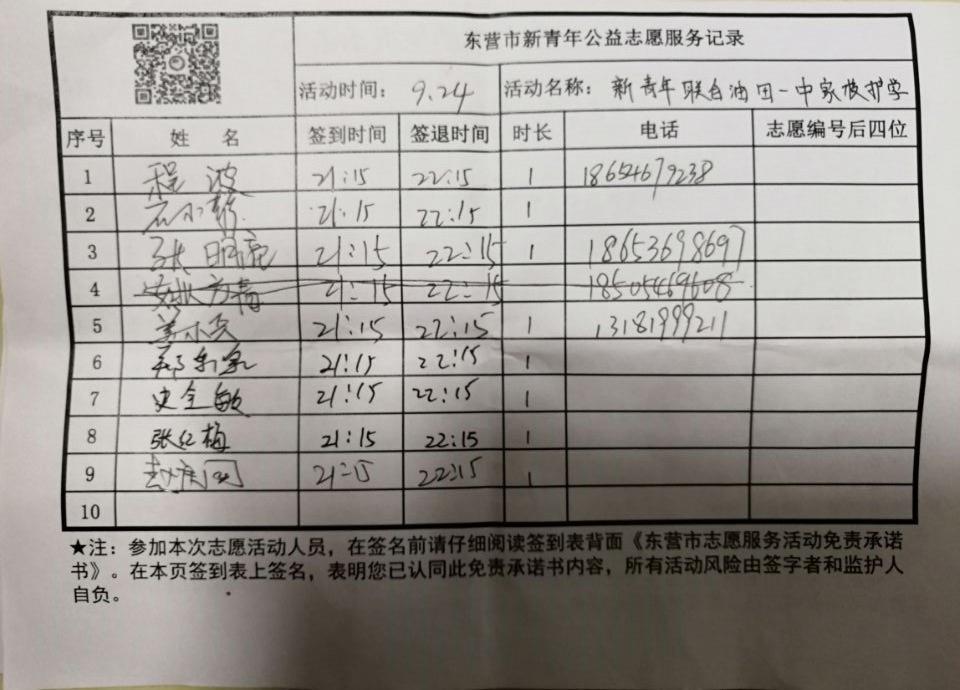 东营市新青年公益志愿服务记录
活动时间： 9.24 活动名称： 新青年联合油田一中家校护学
序号 姓 名 签到时间 签退时间 时长 电话 志愿编号后四位
1 程波 21:15 22:15 1 18654679238
2 21:15 22:15 1
3 张明亮 21:15 22:15 1 18653698697
4 21:15 22:15 18505469608
5 姜小兵 21:15 22:15 1 13181999211
6 21:15 22:15 1
7 史全敏 21:15 22:15 1
8 张红梅 21:15 22:15 1
9 21:15 22:15 1
10
★注：参加本次志愿活动人员，在签名前请仔细阅读签到表背面《东营市志愿服务活动免责承诺
书》。在本页签到表上签名，表明您已认同此免责承诺书内容，所有活动风险由签字者和监护人
自负。